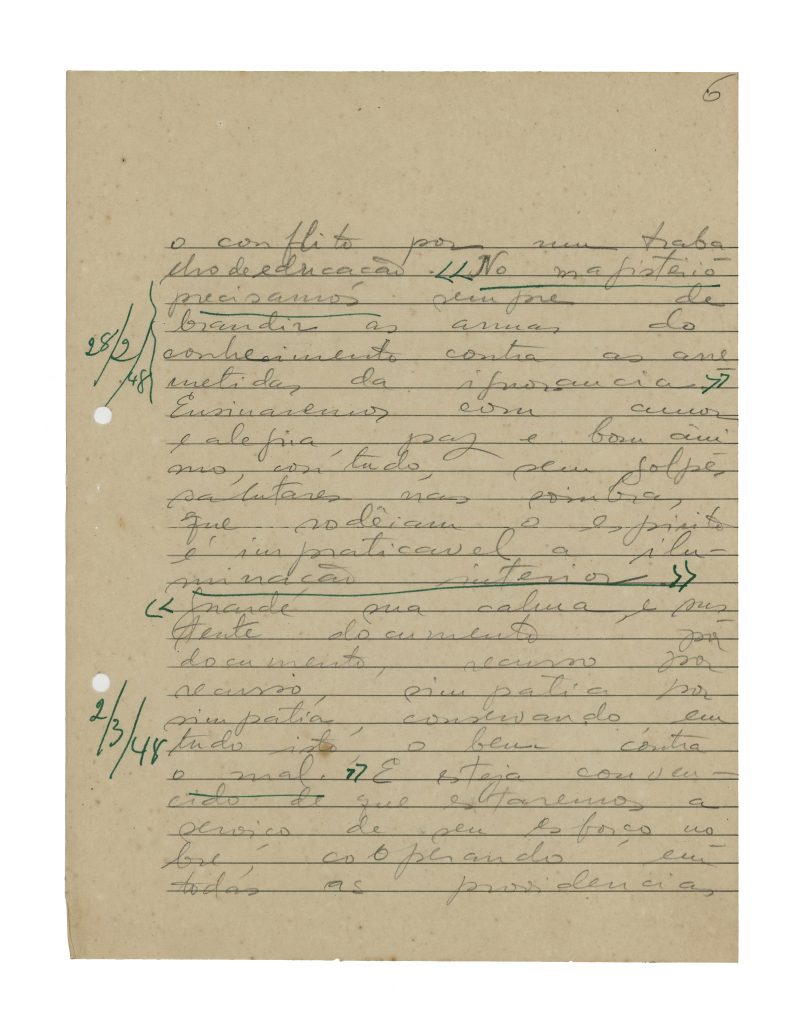 6
o conflito por um traba
lho de educação. «No magisterio
precisamos sempre de
brandir as armas do
28/2/48
conhecimento contra as arre
metidas da ignorancia.»
Ensinaremos com amor
e alegria, paz e bom âni
mo, contudo, sem golpes
salutares nas sombras,
que rodêiam o espirito
é impraticavel a ilu-
minação interior.»
« guarde sua calma, e sus
tente documento por
documento, recurso por
recurso, simpatia por
simpatia, conservando em
2/3/48
tudo isto o bem contra
o mal.» E esteja conven-
cido de que estaremos a
serviço de seu esforço no
bre, cooperando em
todas as providencias